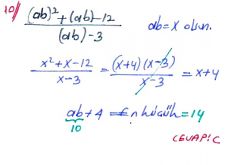 10/ ((ab)² + (ab) - 12) / ((ab) - 3)   ab = x olsun.
(x² + x - 12) / (x - 3) = ((x+4)(x-3)) / (x-3) = x+4
ab + 4 = En küçük = 14
10
CEVAP: C